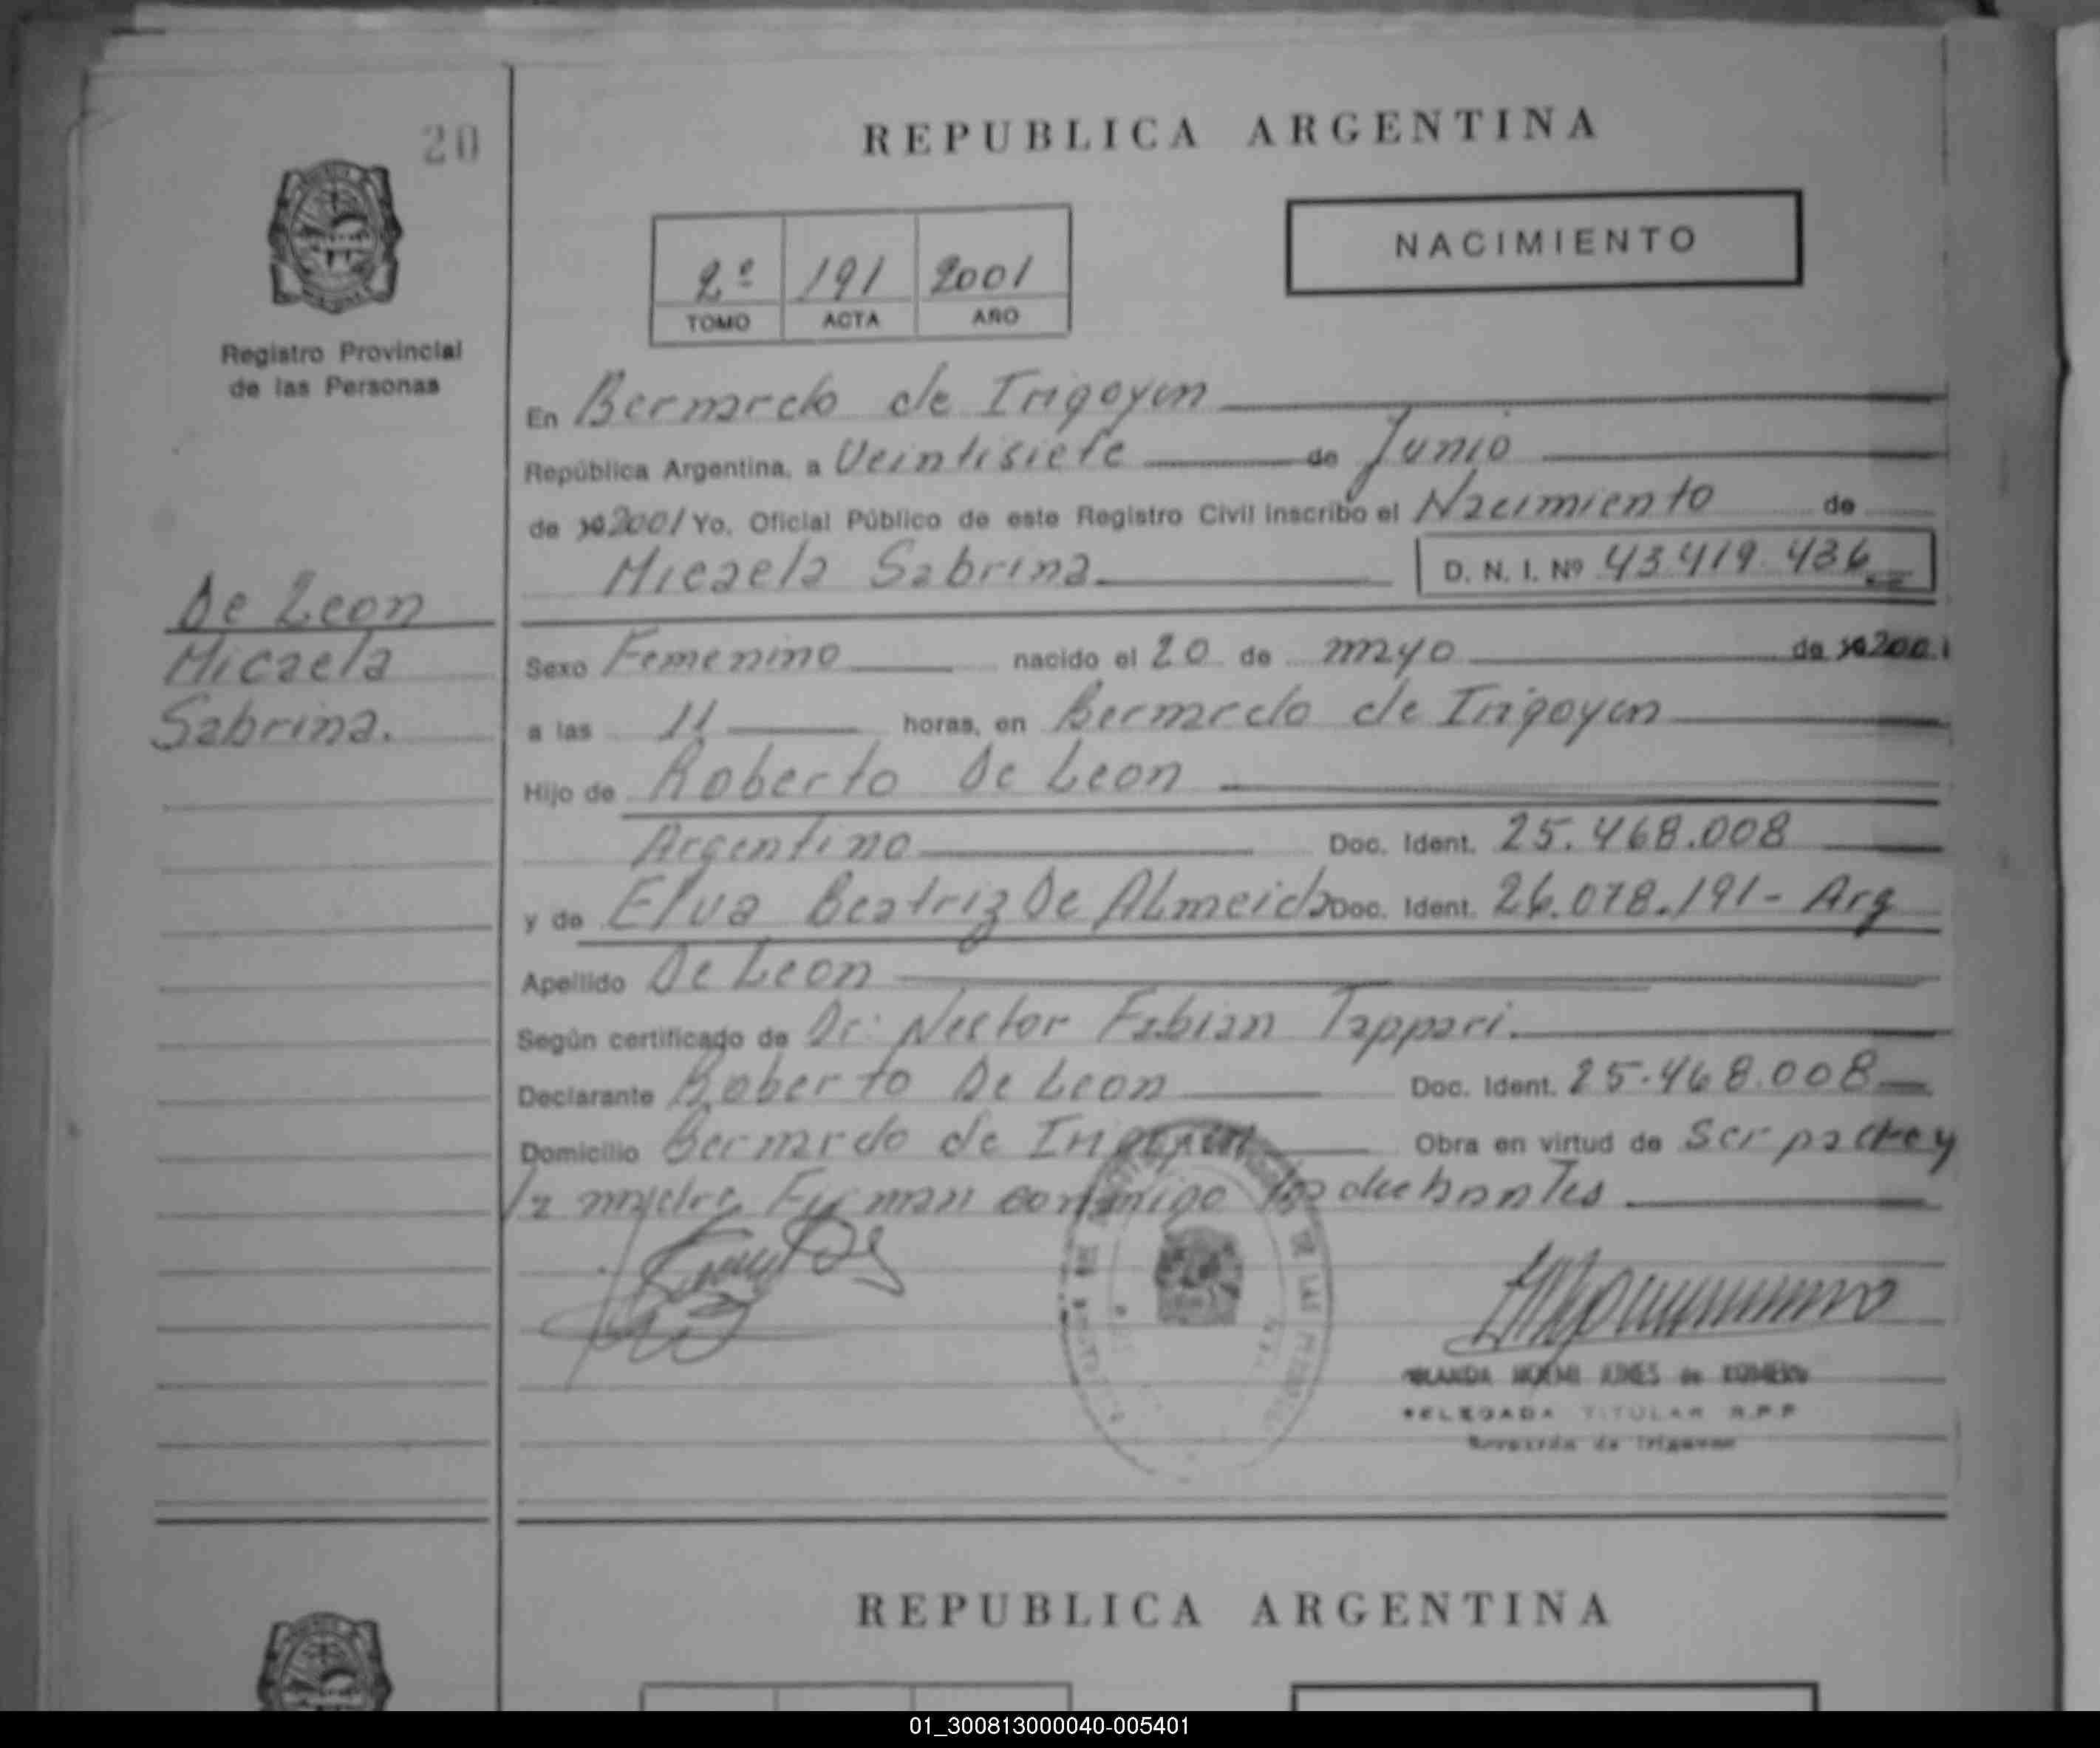 20
REPUBLICA ARGENTINA
NACIMIENTO
2º 191 2001
TOMO ACTA AÑO
Registro Provincial
de las Personas
De Leon
Micaela
Sabrina.
En Bernardo de Irigoyen
República Argentina, a Veintisiete de Junio
de 2001 Yo, Oficial Público de este Registro Civil inscribo el Nacimiento de
Micaela Sabrina. D. N. I. Nº 43 419 436
Sexo Femenino nacido el 20 de mayo de 2001
a las 11 horas, en Bernardo de Irigoyen
Hijo de Roberto De Leon
Argentino Doc. Ident. 25.468.008
y de Elva Beatriz De Almeida Doc. Ident. 26.078.191 - Arg
Apellido De Leon
Según certificado de Dr. Nestor Fabian Tappari.
Declarante Roberto De Leon Doc. Ident. 25.468.008
Domicilio Bernardo de Irigoyen Obra en virtud de Ser padre y
la madre Firman conmigo los
DE LAS
DELEGADA TITULAR R.P.P
Bernardo de Irigoyen
REPUBLICA ARGENTINA
01_300813000040-005401